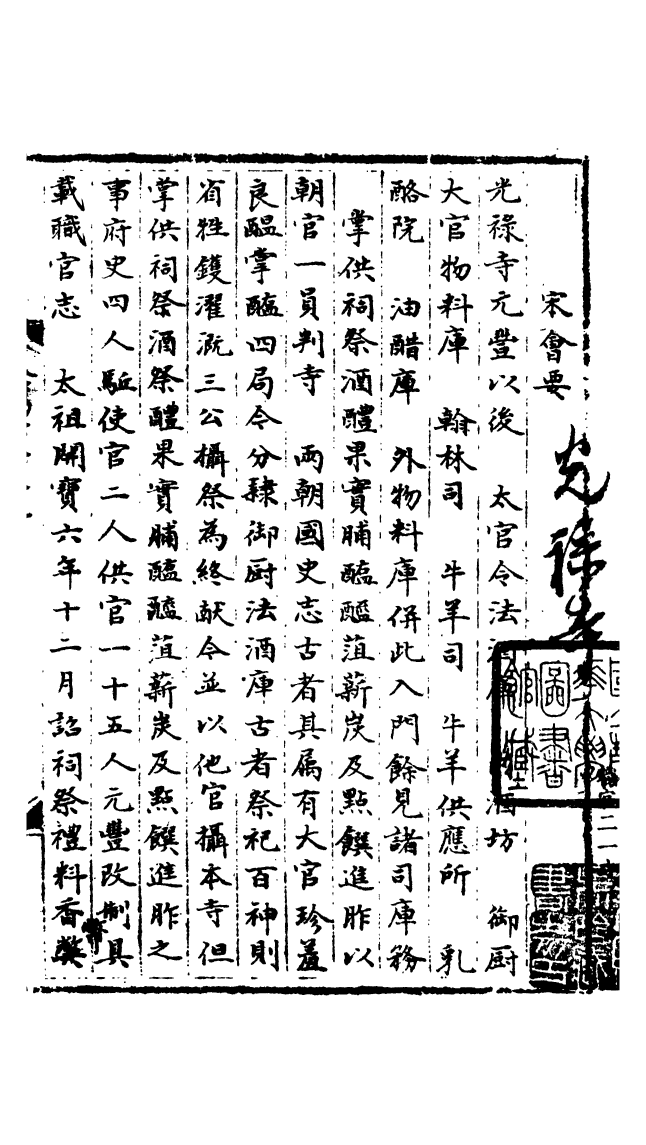 宋會要
光祿寺
光祿寺元豐以後 太官令法酒庫 酒坊 御厨
大官物料庫 翰林司 牛羊司 牛羊供應所 乳
酪院 油醋庫 外物料庫併此入門餘見諸司庫務
掌供祠祭酒醴果實脯醢醓菹薪炭及點饌進胙以
朝官一員判寺 兩朝國史志古者其属有大官珍羞
良醞掌醢四局令分隸御厨法酒庫古者祭祀百神則
省牲鑊濯溉三公攝祭為終献令並以他官攝本寺但
掌供祠祭酒祭醴果實脯醢醓菹薪炭及點饌進胙之
事府史四人驅使官二人供官一十五人元豐改制具
載職官志 太祖開寶六年十二月詔祠祭禮料香幣